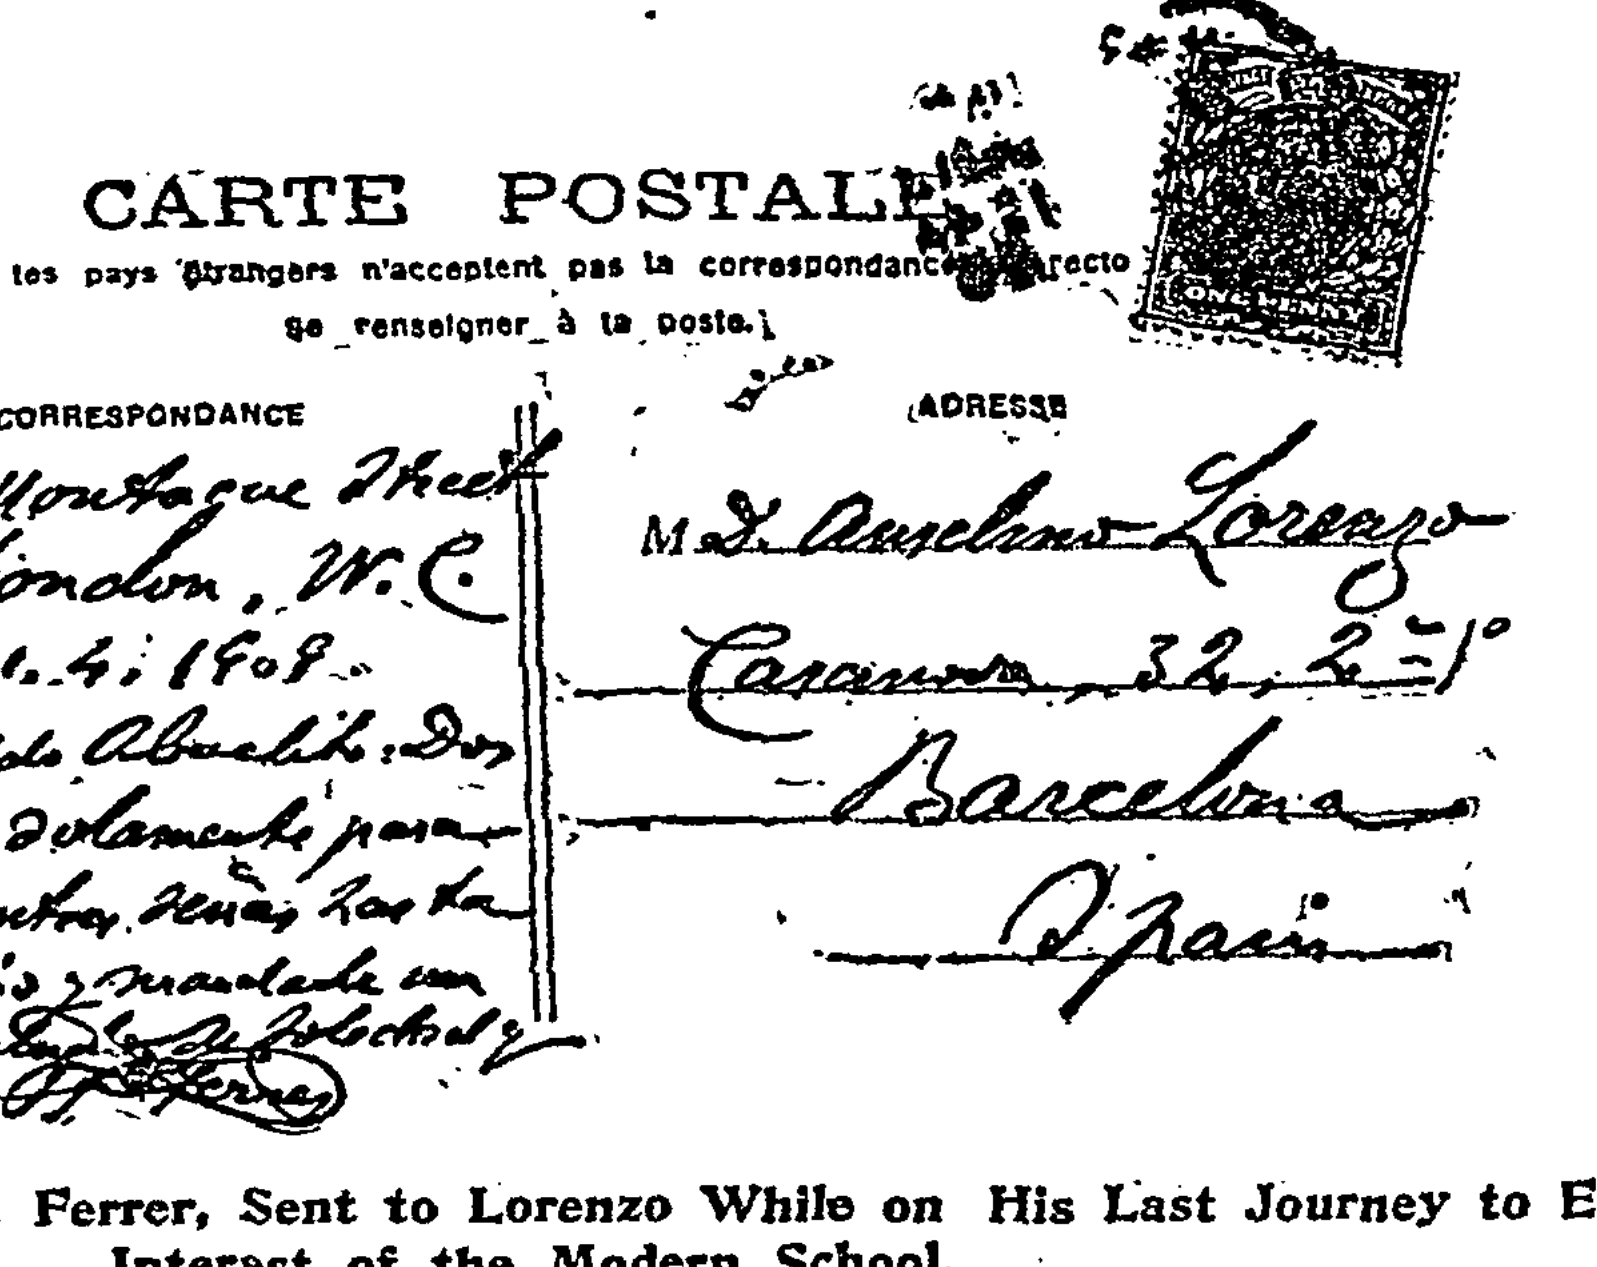 CARTE POSTALE
tes pays étrangers n'acceptent pas la correspondance recto
Se renseigner à la poste.]
CORRESPONDANCE
Montague Street
London, W. C.
4. 1909
Abuelito: Dos
solamente para
hasta
y mandarle un
Ferrer
ADRESSE
M. D. Anselmo Lorenzo
Casanova, 32, 2º 1º
Barcelona
Spain
ONE PENNY
Ferrer, Sent to Lorenzo While on His Last Journey to E
Interest of the Modern School.